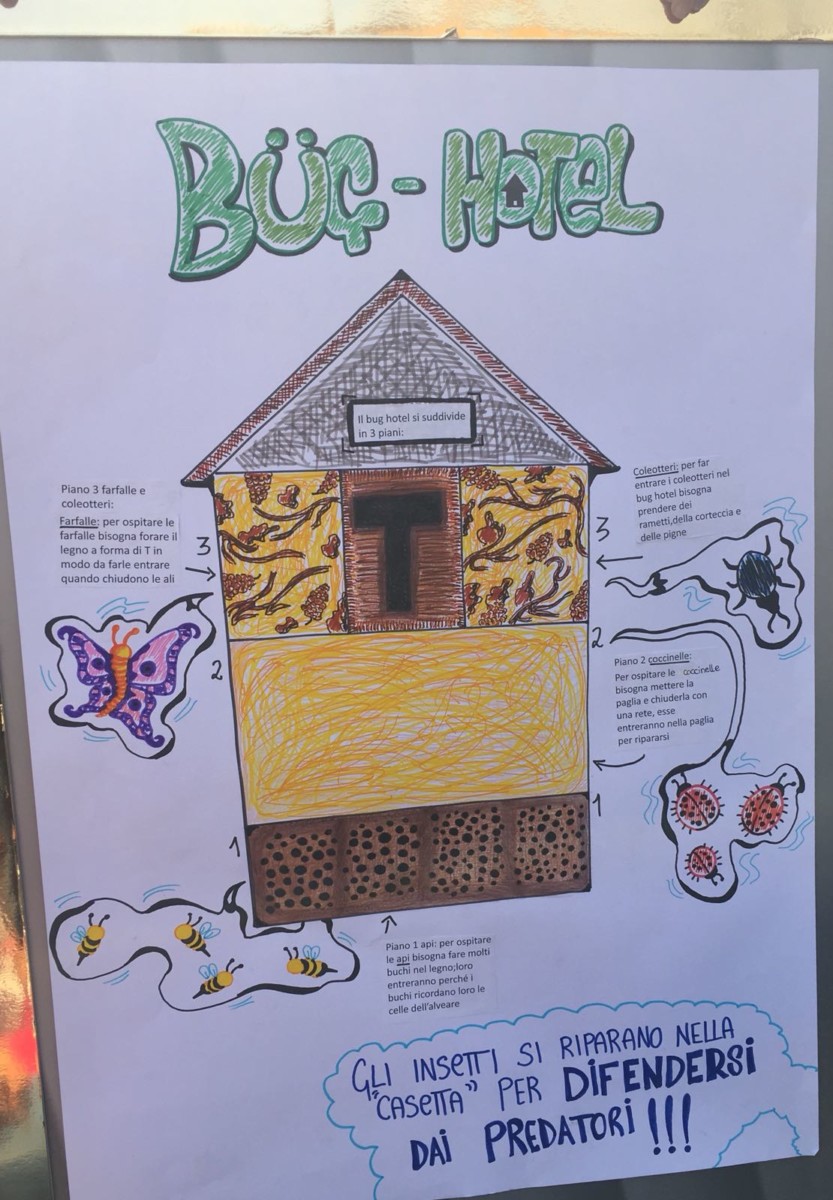 BÜÇ-HOTEL
Il bug hotel si suddivide
in 3 piani:
Piano 3 farfalle e
coleotteri:
Farfalle: per ospitare le
farfalle bisogna forare il
legno a forma di T in
modo da farle entrare
quando chiudono le ali
3
T
Coleotteri: per far
entrare i coleotteri nel
bug hotel bisogna
prendere dei
rametti,della corteccia e
delle pigne
3
2
2
Piano 2 coccinelle:
Per ospitare le coccinelle
bisogna mettere la
paglia e chiuderla con
una rete, esse
entreranno nella paglia
per ripararsi
1
1
Piano 1 api: per ospitare
le api bisogna fare molti
buchi nel legno;loro
entreranno perché i
buchi ricordano loro le
celle dell'alveare
GLI INSETTI SI RIPARANO NELLA
"CASETTA" PER DIFENDERSI
DAI PREDATORI!!!